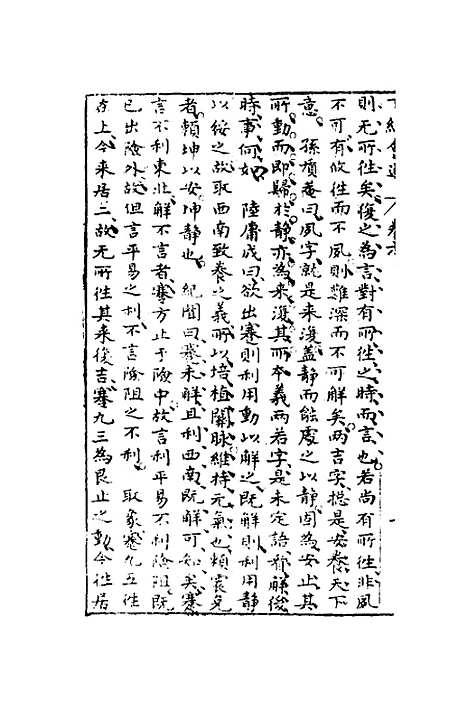 則无所往矣復之為言對有所往之時而言也若尚有所往非夙
不可有攸往而不夙則難深而不可解矣兩吉字總是安養天下
意 孫質菴曰夙字就是来復蓋静而能處之以静固為安止其
所動而即歸於静亦為来復其所本義兩若字是未定語看解後
時事何如 陸庸成曰欲出蹇則利用動以解之既解則利用静
以綏之故取西南致養之義所以培植關脉維持元氣也頻襄免
者頼坤以安坤静也 紀聞曰蹇未解且利西南既解可知矣蹇
言不利東北解不言者蹇方止于險中故言利平易不利險阻既
已出險外故但言平易之利不言險阻之不利 取象蹇九五往
在上今来居二故无所往其来復吉蹇九三為艮止之動今往居